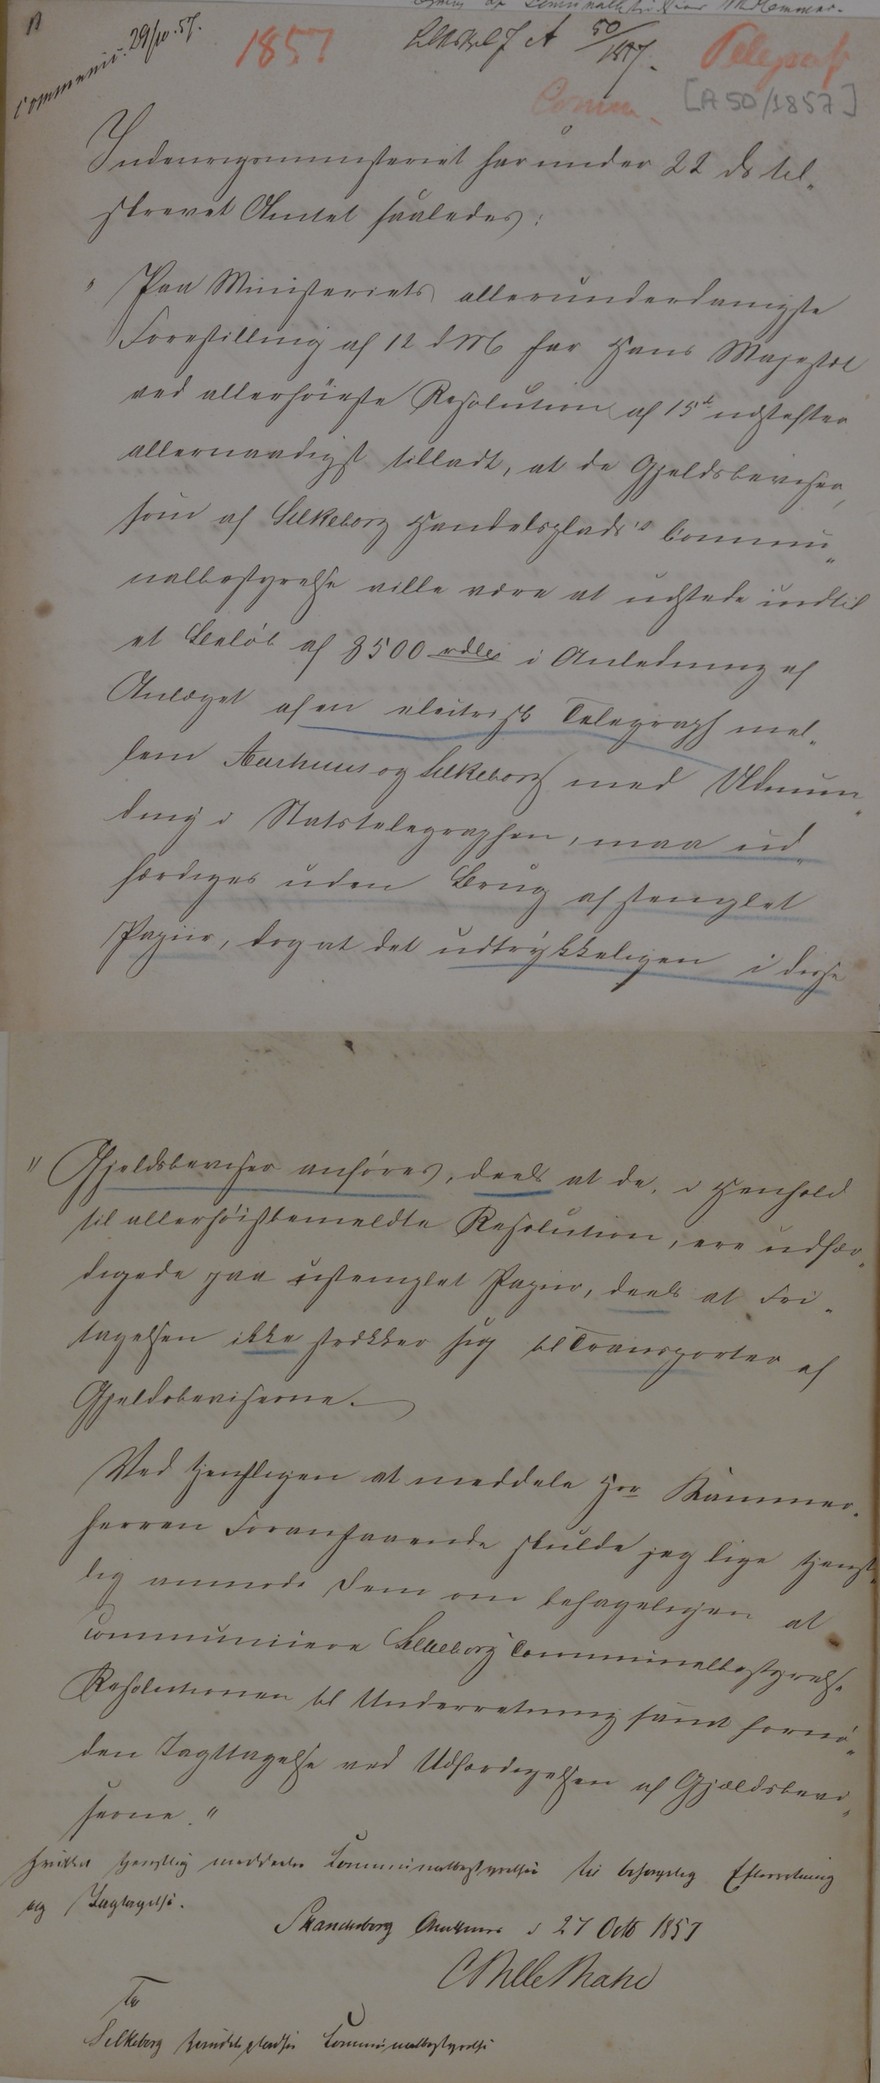 Communic. 29/10.57.
1857
A 50/1857.
Telegraf
Comm.
[A 50/1857]
Indenrigsministeriet har under 22 ds til-
skrevet Amtet saaledes:
" Paa Ministeriets allerunderdanigste
Forestilling af 12 d M har Hans Majestæt
ved allerhøieste Resolution af 15d næstefter
allernaadigst tilladt, at de Gjeldsbeviser,
som af Silkeborg Handelsplads's Commu-
nalbestyrelse ville være at udstede indtil
et Beløb af 3500 rdlr i Anledning af
Anlæget af en electrisk Telegraph mel-
lem Aarhuus og Silkeborg med Udmun-
ding i Statstelegraphen, maa ud-
færdiges uden Brug af stemplet
Papiir, dog at det udtrykkeligen i disse
" Gjeldsbeviser anføres, deels at de, i Henhold
til allerhøistbemeldte Resolution, ere udfær-
digede paa ustemplet Papiir, deels at Fri-
tagelsen ikke strækker sig til Transporter af
Gjeldsbeviserne.
Ved tjenstligen at meddele Hr Kammer-
herren Foranstaaende skulde jeg lige tjenst-
lig anmode Dem om behageligen at
communicere Silkeborg Communalbestyrelse
Resolutionen til Underretning samt fornø-
den Iagttagelse ved Udfærdigelsen af Gjældsbevi-
serne."
Hvilket tjenstlig meddeles Communalbestyrelsen til behagelig Efterretning
og Iagtagelse.
Skanderborg Amthuus d 27 Octb 1857
Til
Silkeborg Handelsplads's Communalbestyrelse